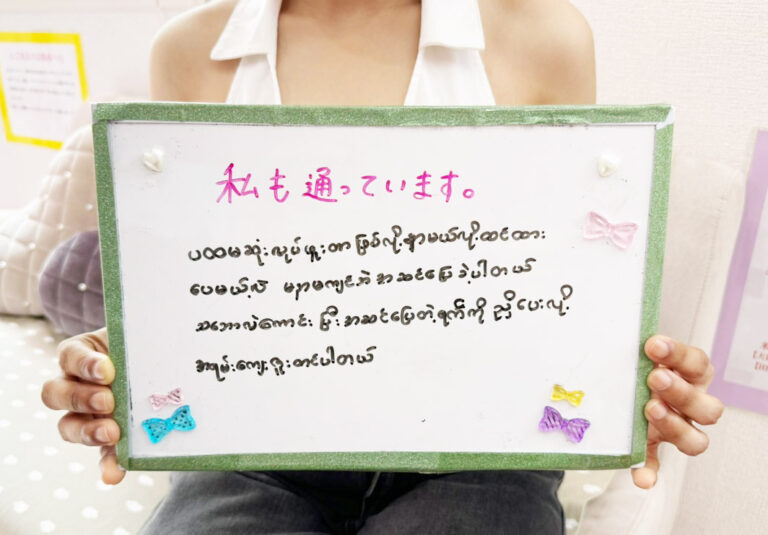 私も通っています。
ပထမဆုံး လုပ်ဖူးတာ ဖြစ်လို့ နာမယ်လို့ ထင်ထား
ပေမယ့်လဲ မနာမကျင်ဘဲ အဆင်ပြေခဲ့ပါတယ်
သဘောလဲကောင်း ပြီး အဆင်ပြေတဲ့ရက်ကို ညှိပေးလို့
အရမ်းကျေးဇူးတင်ပါတယ်